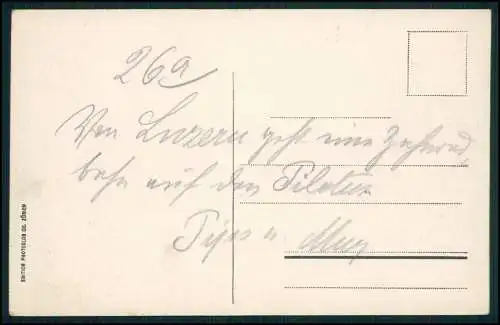 26a
Von Luzern geht eine Zahnrad,
bahn auf den Pilatus
EDITION PHOTOGLOB CO. ZÜRICH